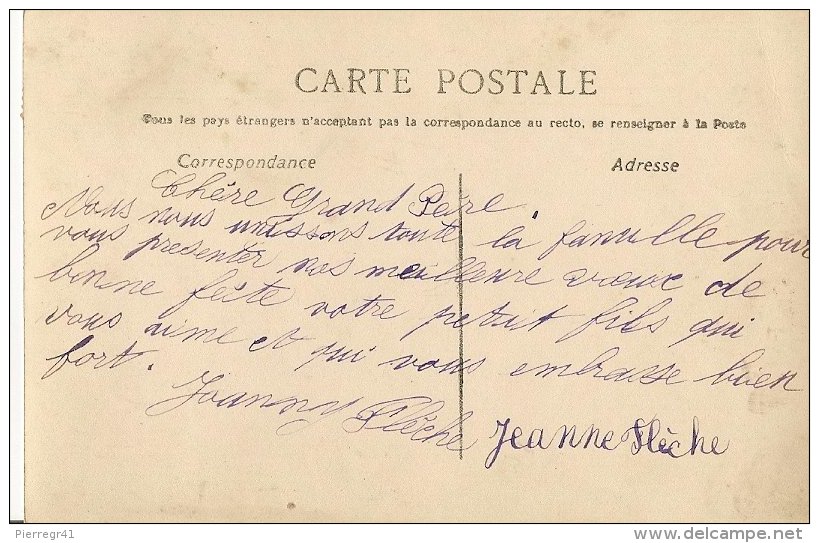 CARTE POSTALE
Tous les pays étrangers n'acceptent pas la correspondance au recto, se renseigner à la Poste
Correspondance
Adresse
Chère Grand Peire
Nous nous unissons toute la famille pour
vous présenter nos meilleure vœux de
bonne feête votre petit fils qui
vous aime et qui vous embrasse bien
fort.
Joanny Flèche
Jeanne Flèche
Pierregr41
delcampe.net